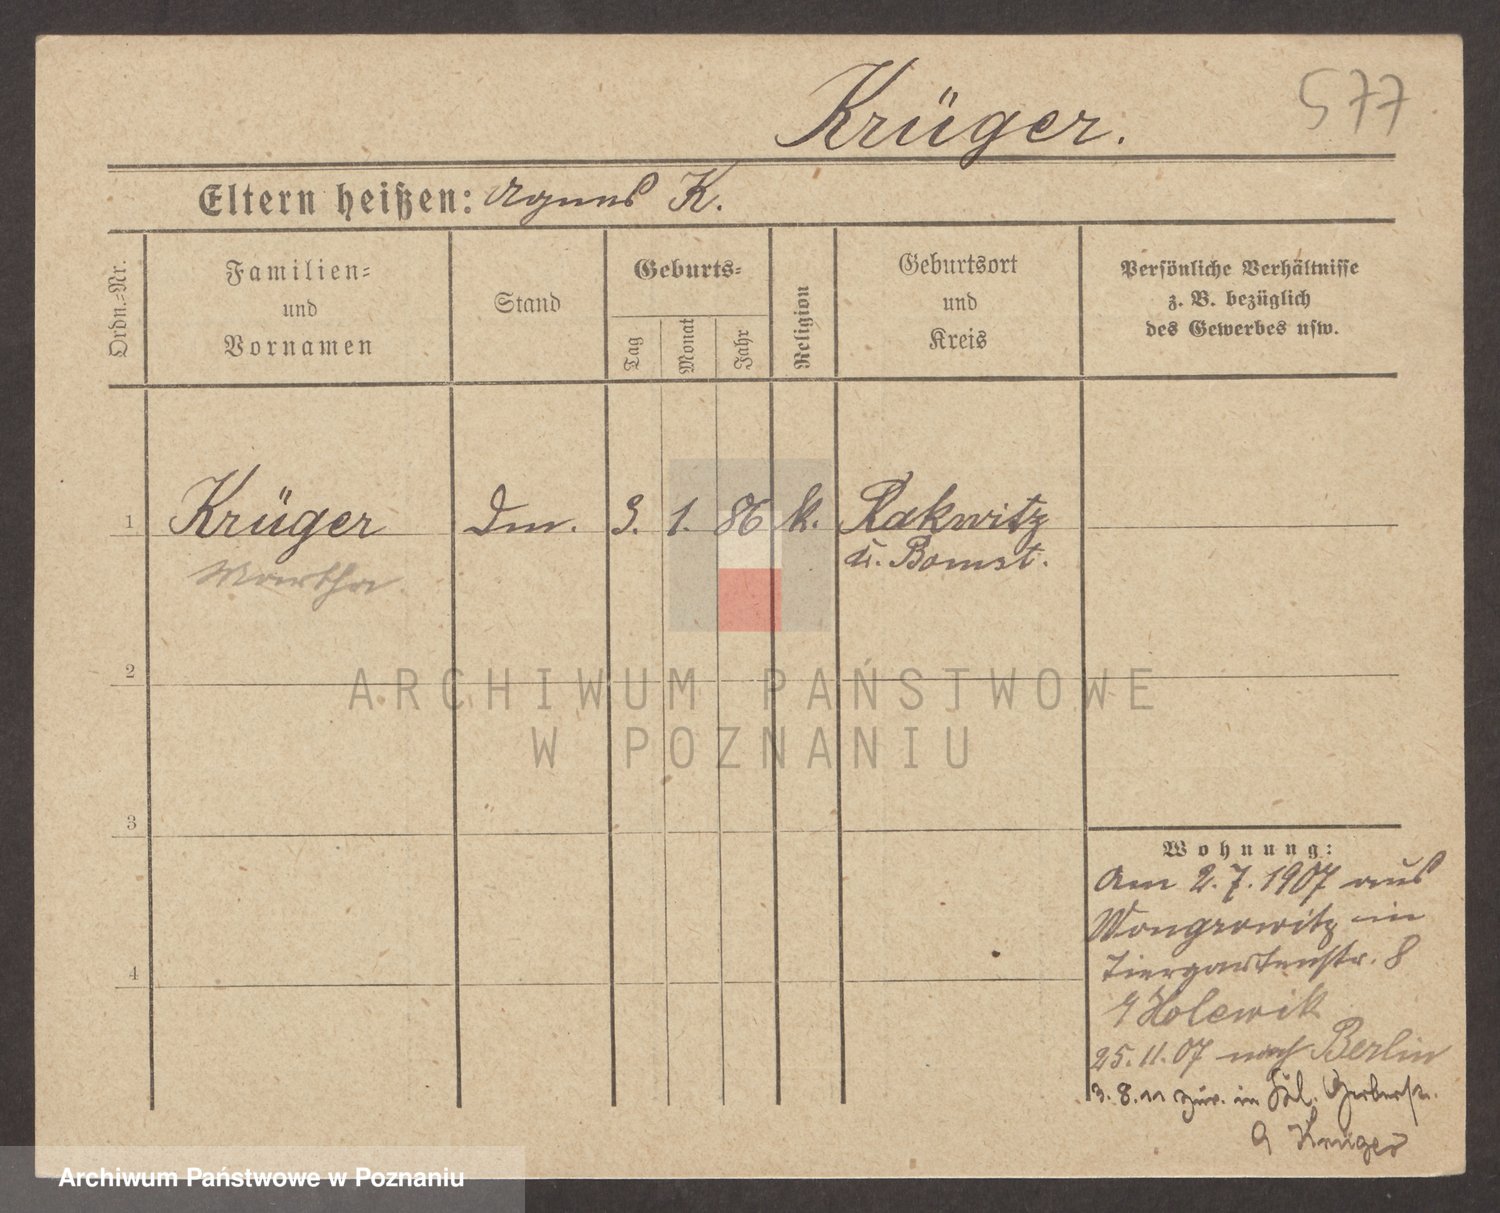 577
Krüger.
Eltern heißen: Agnes K.
Ordn.=Nr.
Familien=
und
Vornamen
Stand
Geburts=
Tag
Monat
Jahr
Religion
Geburtsort
und
Kreis
Persönliche Verhältnisse
z. B. bezüglich
des Gewerbes usw.
1 Krüger 3. 1. 86 k. Rakwitz
Martha. Bomst.
2
3
4
Wohnung:
Am 2.7.1907 aus
Wongrowitz in
Tiergartenstr. 8
Holewik
25.11.07 nach Berlin
3.8.11 zur. in Gerberstr.
Krüger
ARCHIWUM PAŃSTWOWE
W POZNANIU
Archiwum Państwowe w Poznaniu